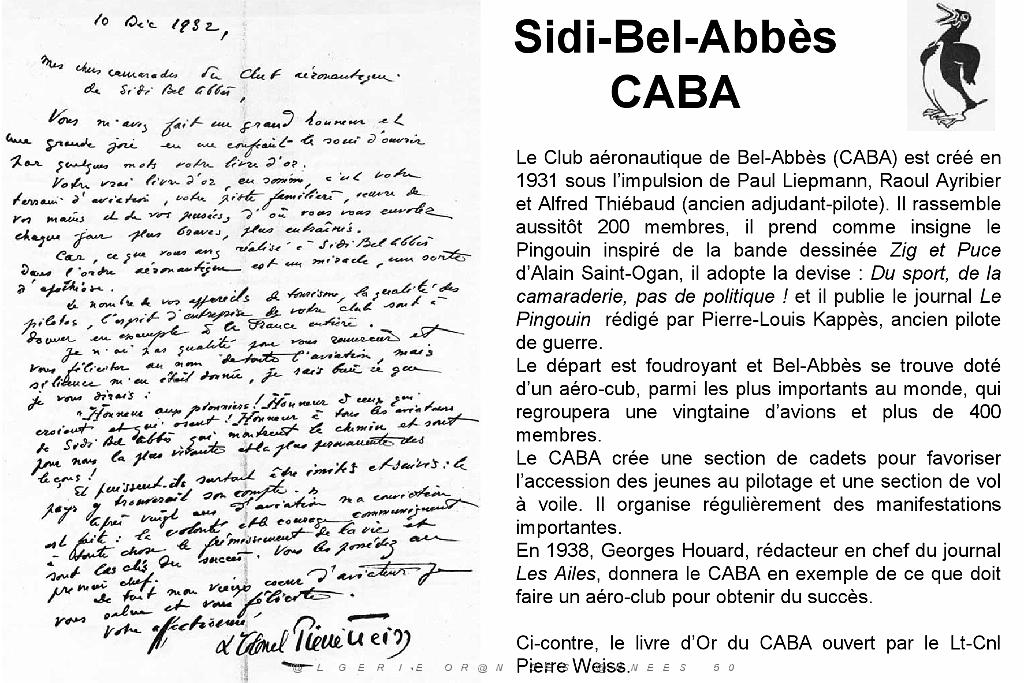 10 Déc 1932,
Mes chers camarades du Club aéronautique
de Sidi Bel Abbès,
Vous m'avez fait un grand honneur et
une grande joie en me confiant le souci d'ouvrir
par quelques mots votre livre d'or.
Votre vrai livre d'or, en somme, c'est votre
terrain d'aviation, votre piste familière, œuvre de
vos mains et de vos pensées, d'où vous vous envolez
chaque jour plus braves, plus entraînés.
Car, ce que vous avez réalisé à Sidi Bel Abbès
dans l'ordre aéronautique est un miracle, une sorte
d'apothéose.
Le nombre de vos appareils de tourisme, la qualité des
pilotes, l'esprit d'entreprise de votre club sont à
donner en exemple à la France entière.
Je n'ai pas qualité pour vous remercier et
vous féliciter au nom de toute l'aviation, mais
si licence m'en était donnée, je sais bien ce que
je vous dirais :
"Honneur aux pionniers ! Honneur à ceux qui
croient et qui osent ! Honneur à tous les aviateurs
de Sidi Bel Abbès qui montrent le chemin et sont
pour nous la plus vivante et la plus permanente des
leçons !
Et puissent-ils surtout être imités et suivis : le
pays y trouverait son compte."
Après vingt ans d'aviation ma conviction
est faite : la volonté et le courage communiquent
à toute chose le frémissement de la vie et
sont les clés du succès. Vous les possédez au
premier chef.
De tout mon vieux cœur d'aviateur je
vous salue et vous félicite.
Votre affectionné,
Lt Colonel Pierre Weiss
Sidi-Bel-Abbès
CABA
Le Club aéronautique de Bel-Abbès (CABA) est créé en
1931 sous l'impulsion de Paul Liepmann, Raoul Ayribier
et Alfred Thiébaud (ancien adjudant-pilote). Il rassemble
aussitôt 200 membres, il prend comme insigne le
Pingouin inspiré de la bande dessinée Zig et Puce
d'Alain Saint-Ogan, il adopte la devise : Du sport, de la
camaraderie, pas de politique ! et il publie le journal Le
Pingouin rédigé par Pierre-Louis Kappès, ancien pilote
de guerre.
Le départ est foudroyant et Bel-Abbès se trouve doté
d'un aéro-cub, parmi les plus importants au monde, qui
regroupera une vingtaine d'avions et plus de 400
membres.
Le CABA crée une section de cadets pour favoriser
l'accession des jeunes au pilotage et une section de vol
à voile. Il organise régulièrement des manifestations
importantes.
En 1938, Georges Houard, rédacteur en chef du journal
Les Ailes, donnera le CABA en exemple de ce que doit
faire un aéro-club pour obtenir du succès.
Ci-contre, le livre d'Or du CABA ouvert par le Lt-Cnl
Pierre Weiss.